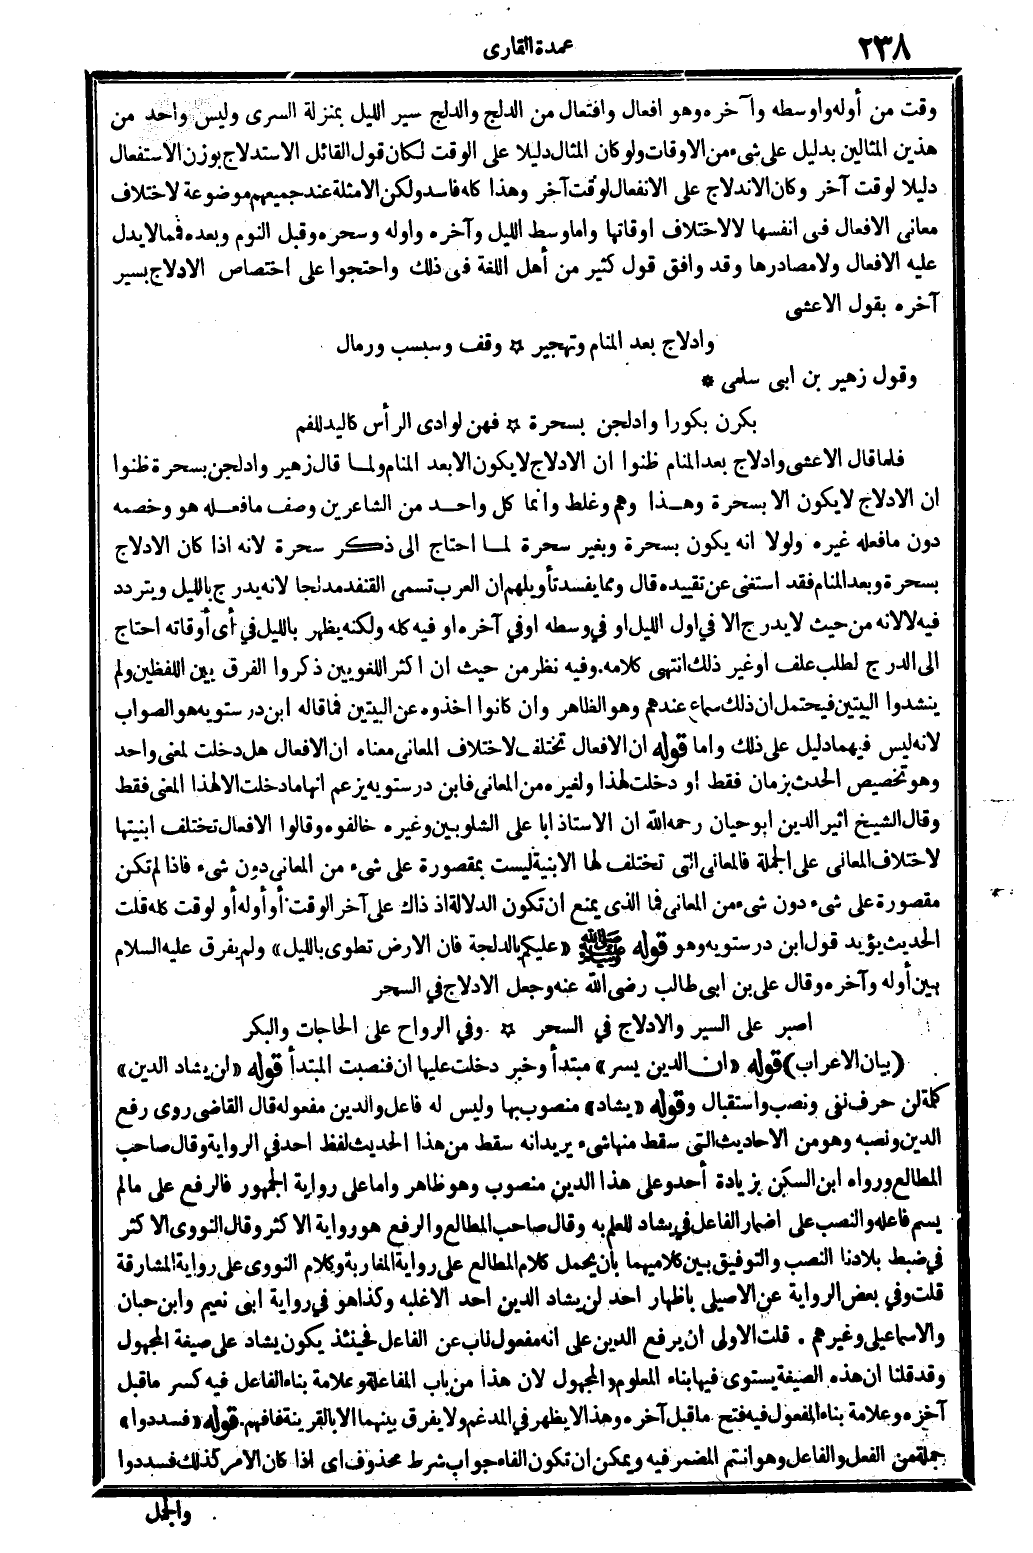 ٢٣٨
عمدة القارى
وقت من أوله واوسطه وآخره وهو افعال وافتعال من الدلج والدلج سير الليل بمنزلة السرى وليس واحد من
هذين المثالين بدليل على شىء من الاوقات ولو كان المثال دليلا على الوقت لكان قول القائل الاستدلاج بوزن الاستفعال
دليلا لوقت آخر وكان الاندلاج على الانفعال لوقت آخر وهذا كله فاسد ولكن الامثلة عند جميعهم موضوعة لاختلاف
معانى الافعال فى انفسها لا لاختلاف اوقاتها واما وسط الليل وآخره واوله وسحره وقبل النوم وبعده فمما لا يدل
عليه الافعال ولا مصادرها وقد وافق قول كثير من أهل اللغة فى ذلك واحتجوا على اختصاص الادلاج بسير
آخره بقول الاعشى
وادلاج بعد المنام وتهجير ✡ وقف وسبسب ورمال
وقول زهير بن ابى سلمى *
بكرن بكورا وادلجن بسحرة ✡ فهن لوادى الرأس كاليد للفم
فلما قال الاعشى وادلاج بعد المنام ظنوا ان الادلاج لا يكون الا بعد المنام ولما قال زهير وادلجن بسحرة ظنوا
ان الادلاج لا يكون الا بسحرة وهذا وهم وغلط وانما كل واحد من الشاعرين وصف ما فعله هو وخصمه
دون ما فعله غيره ولولا انه يكون بسحرة وبغير سحرة لما احتاج الى ذكر سحرة لانه اذا كان الادلاج
بسحرة وبعد المنام فقد استغنى عن تقييده قال ومما يفسد تأويلهم ان العرب تسمى القنفد مدلجا لانه يدرج بالليل ويتردد
فيه لا لانه من حيث لا يدرج الا في اول الليل او في وسطه اوفي آخره او فيه كله ولكنه يظهر بالليل في أى أوقاته احتاج
الى الدرج لطلب علف او غير ذلك انتهى كلامه. وفيه نظر من حيث ان اكثر اللغويين ذكروا الفرق بين اللفظين ولم
ينشدوا البيتين فيحتمل ان ذلك سماع عندهم وهو الظاهر وان كانوا اخذوه عن البيتين فما قاله ابن درستويه هو الصواب
لانه ليس فيهما دليل على ذلك واما قوله ان الافعال تختلف لاختلاف المعانى معناه ان الافعال هل دخلت لمعنى واحد
وهو تخصيص الحدث بزمان فقط او دخلت لهذا ولغيره من المعانى فابن درستويه يزعم انها ما دخلت الا لهذا المعنى فقط
وقال الشيخ اثير الدين ابو حيان رحمه الله ان الاستاذ ابا على الشلوبين وغيره خالفوه وقالوا الافعال تختلف ابنيتها
لاختلاف المعانى على الجملة فالمعانى التى تختلف لها الابنية ليست بمقصورة على شىء من المعانى دون شىء فاذا لم تكن
مقصورة على شىء دون شىء من المعانى فما الذى يمنع ان تكون الدلالة اذ ذاك على آخر الوقت أو أوله أو لوقت كله قلت
الحديث يؤيد قول ابن درستويه وهو قوله ﷺ «عليكم بالدلجة فان الارض تطوى بالليل» ولم يفرق عليه السلام
بين أوله وآخره وقال على بن ابى طالب رضى الله عنه وجعل الادلاج في السحر
اصبر على السير والادلاج في السحر ✡ وفي الرواح على الحاجات والبكر
(بيان الاعراب) قوله «ان الدين يسر» مبتدأ وخبر دخلت عليها ان فنصبت المبتدأ قوله «لن يشاد الدين»
كلمة لن حرف نفى ونصب واستقبال وقوله «يشاد» منصوب بها وليس له فاعل والدين مفعوله قال القاضى روى رفع
الدين ونصبه وهو من الاحاديث التى سقط منها شىء يريد انه سقط من هذا الحديث لفظ احد في الرواية وقال صاحب
المطالع ورواه ابن السكن بزيادة أحد وعلى هذا الدين منصوب وهو ظاهر واما على رواية الجمهور فالرفع على مالم
يسم فاعله والنصب على اضمار الفاعل في يشاد للعلم به وقال صاحب المطالع والرفع هو رواية الاكثر وقال النووى الاكثر
في ضبط بلادنا النصب والتوفيق بين كلاميهما بأن يحمل كلام المطالع على رواية المغاربة وكلام النووى على رواية المشارقة
قلت وفي بعض الرواية عن الاصيلى باظهار احد لن يشاد الدين احد الا غلبه وكذا هو في رواية ابى نعيم وابن حبان
والاسماعيلى وغيرهم . قلت الاولى ان يرفع الدين على انه مفعول ناب عن الفاعل فحينئذ يكون يشاد على صيغة المجهول
وقد قلنا ان هذه الصيغة يستوى فيها بناء المعلوم والمجهول لان هذا من باب المفاعلة وعلامة بناء الفاعل فيه كسر ماقبل
آخره وعلامة بناء المفعول فيه فتح ماقبل آخره وهذا لا يظهر في المدغم ولا يفرق بينهما الا بالقرينة فافهم. قوله «فسددوا»
جملة من الفعل والفاعل وهو انتم المضمر فيه ويمكن ان تكون الفاء جواب شرط محذوف اى اذا كان الامر كذلك فسددوا
والجمل